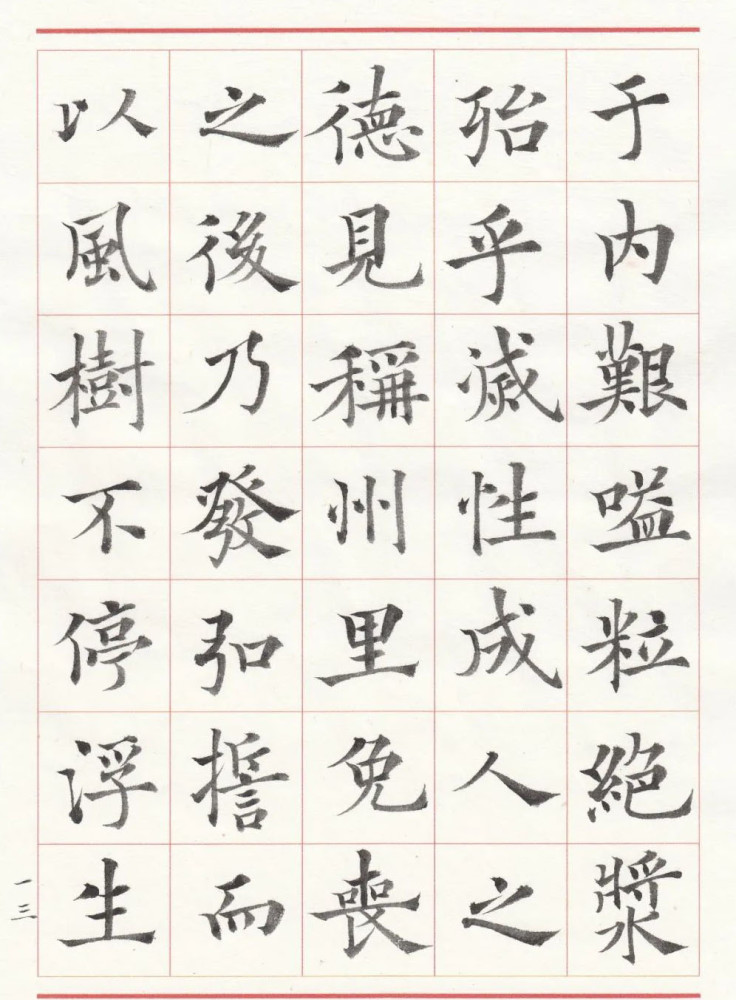 于内艱嗌粒絶漿
殆乎滅性成人之
德見稱州里免喪
之後乃發弘誓而
以風樹不停浮生
一三